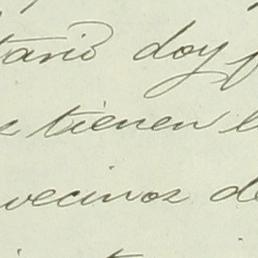 tario doy f
e tienen l
vecinos de